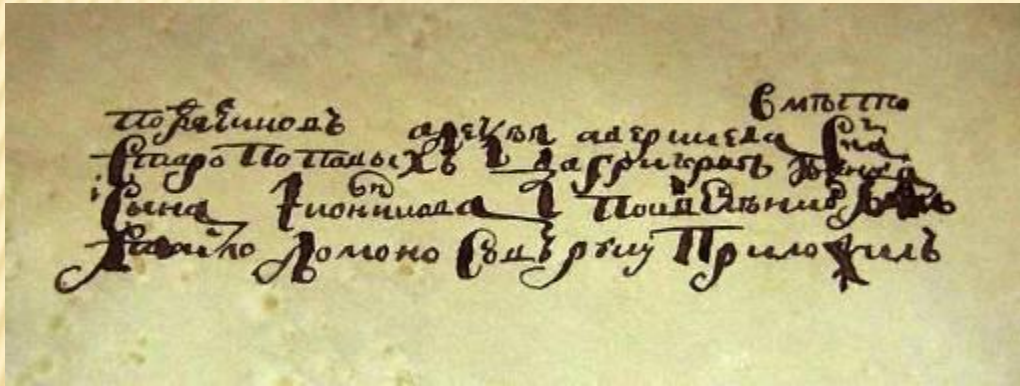 вмѣсто
подрячиковъ алеѯѣя аверкиева сна
старопоповыхъ да григорья
сына иконникова по велѣнию
ломоносовъ руку приложилъ